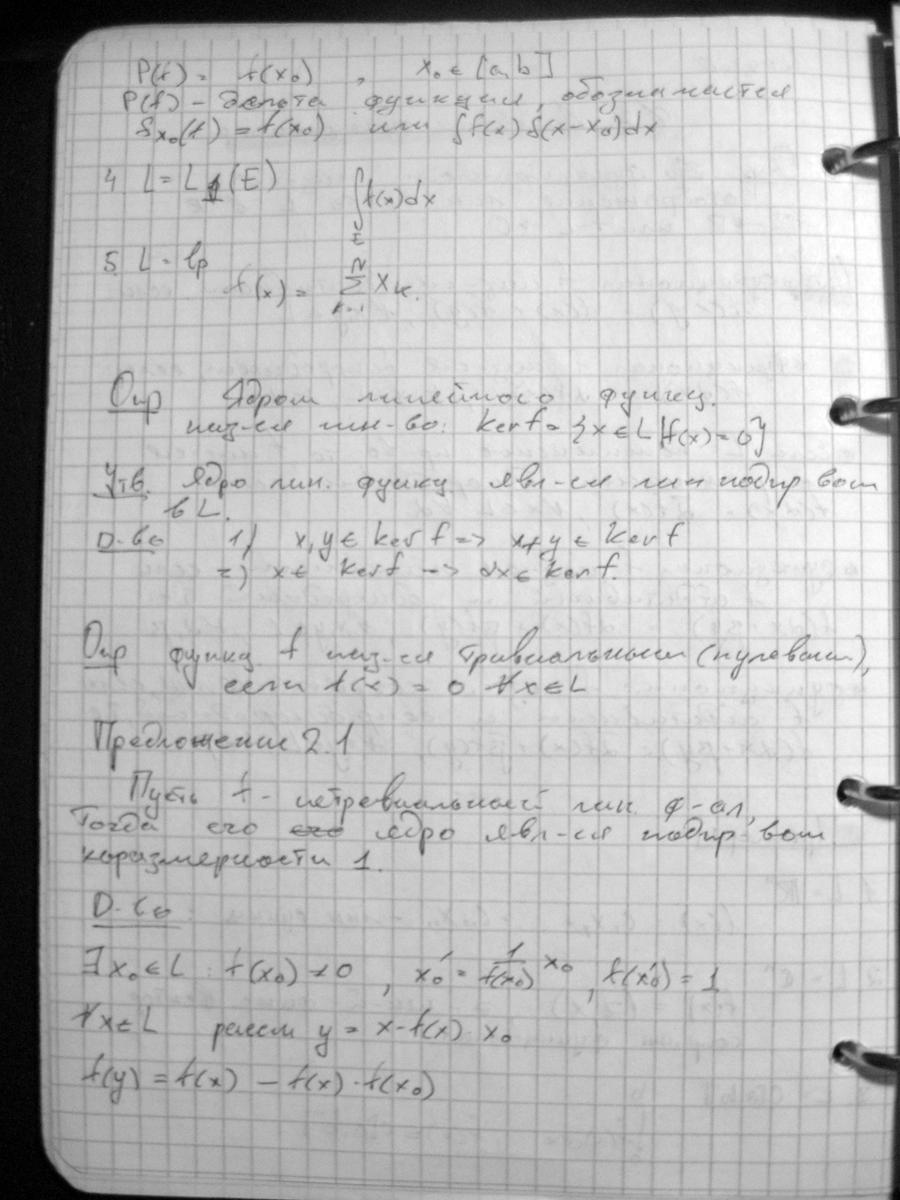 P(f) = f(x₀) , x₀ ∈ [a,b]
P(f) - дельта функция, обозначается
δₓ₀(f) = f(x₀) или ∫f(x) δ(x-x₀)dx
4 L = L₁(E) ∫_E f(x)dx
5. L = lp
f(x) = ∑_{k=1}^{N} xₖ.
Опр Ядром линейного функц.
наз-ся мн-во: kerf = {x ∈ L | f(x) = 0}
Утв. Ядро лин. функц. явл-ся лин подпр-вом
в L.
D-во 1) x, y ∈ kerf => x+y ∈ kerf
2) x ∈ kerf => αx ∈ kerf.
Опр функц f наз-ся тривиальным (нулевым),
если f(x) = 0 ∀x ∈ L
Предложение 2.1
Пусть f - нетревиальный лин. ф-ал,
Тогда его его ядро явл-ся подпр-вом
коразмерности 1.
D-во
∃ x₀ ∈ L : f(x₀) ≠ 0 , x₀' = 1/f(x₀) x₀ , f(x₀') = 1
∀x ∈ L y = x - f(x) · x₀
f(y) = f(x) - f(x) · f(x₀)